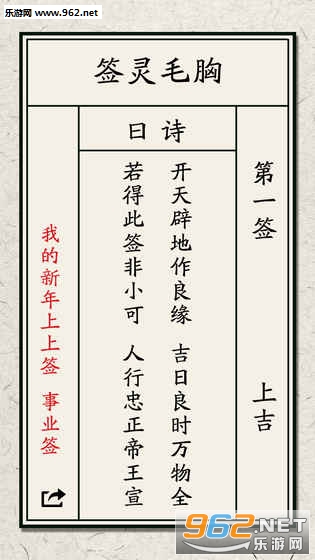 乐游网 www.962.net
签灵毛胸
曰诗
第一签 上吉
开天辟地作良缘 吉日良时万物全
若得此签非小可 人行忠正帝王宣
我的新年上上签 事业签
962.NET
乐游网